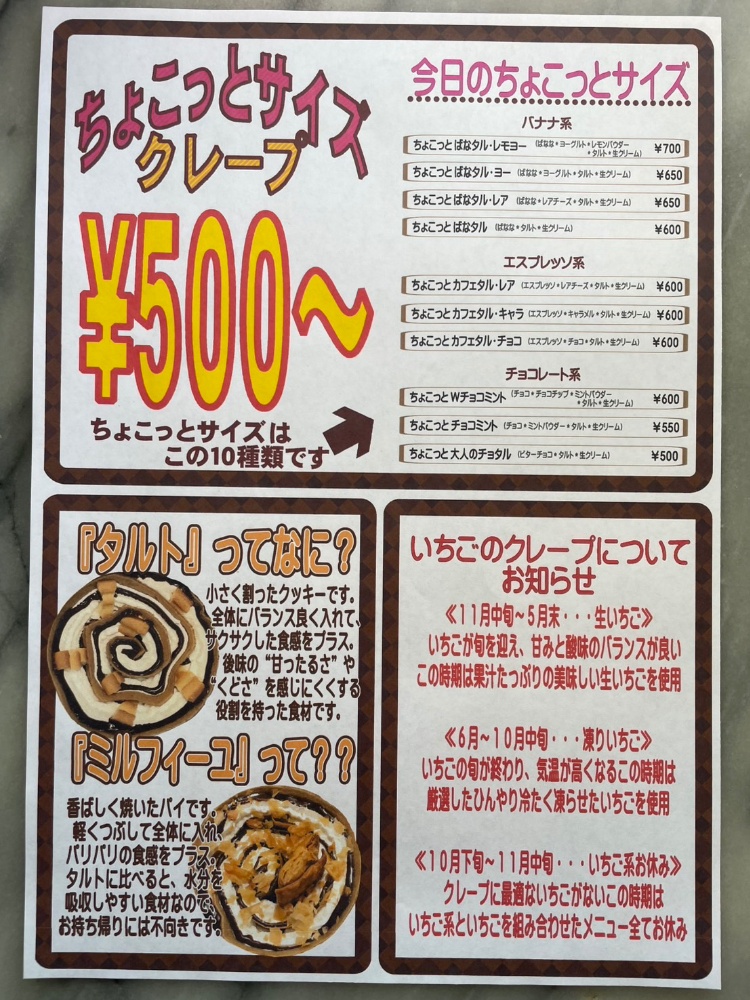 ちょこっとサイズ
クレープ
¥500～
ちょこっとサイズは
この10種類です
今日のちょこっとサイズ
バナナ系
ちょこっと ばなタル・レモヨー (ばなな＊ヨーグルト＊レモンパウダー
＊タルト＊生クリーム) ¥700
ちょこっと ばなタル・ヨー (ばなな＊ヨーグルト＊タルト＊生クリーム) ¥650
ちょこっと ばなタル・レア (ばなな＊レアチーズ＊タルト＊生クリーム) ¥650
ちょこっと ばなタル (ばなな＊タルト＊生クリーム) ¥600
エスプレッソ系
ちょこっと カフェタル・レア (エスプレッソ＊レアチーズ＊タルト＊生クリーム) ¥600
ちょこっと カフェタル・キャラ (エスプレッソ＊キャラメル＊タルト＊生クリーム) ¥600
ちょこっと カフェタル・チョコ (エスプレッソ＊チョコ＊タルト＊生クリーム) ¥600
チョコレート系
ちょこっと Wチョコミント (チョコ＊チョコチップ＊ミントパウダー
＊タルト＊生クリーム) ¥600
ちょこっと チョコミント (チョコ＊ミントパウダー＊タルト＊生クリーム) ¥550
ちょこっと 大人のチョタル (ビターチョコ＊タルト＊生クリーム) ¥500
『タルト』ってなに？
小さく割ったクッキーです。
全体にバランス良く入れて、
サクサクした食感をプラス。
後味の“甘ったるさ”や
“くどさ”を感じにくくする
役割を持った食材です。
『ミルフィーユ』って？？
香ばしく焼いたパイです。
軽くつぶして全体に入れ、
パリパリの食感をプラス。
タルトに比べると、水分を
吸収しやすい食材なので、
お持ち帰りには不向きです。
いちごのクレープについて
お知らせ
《11月中旬～5月末・・・生いちご》
いちごが旬を迎え、甘みと酸味のバランスが良い
この時期は果汁たっぷりの美味しい生いちごを使用
《6月～10月中旬・・・凍りいちご》
いちごの旬が終わり、気温が高くなるこの時期は
厳選したひんやり冷たく凍らせたいちごを使用
《10月下旬～11月中旬・・・いちご系お休み》
クレープに最適ないちごがないこの時期は
いちご系といちごを組み合わせたメニュー全てお休み